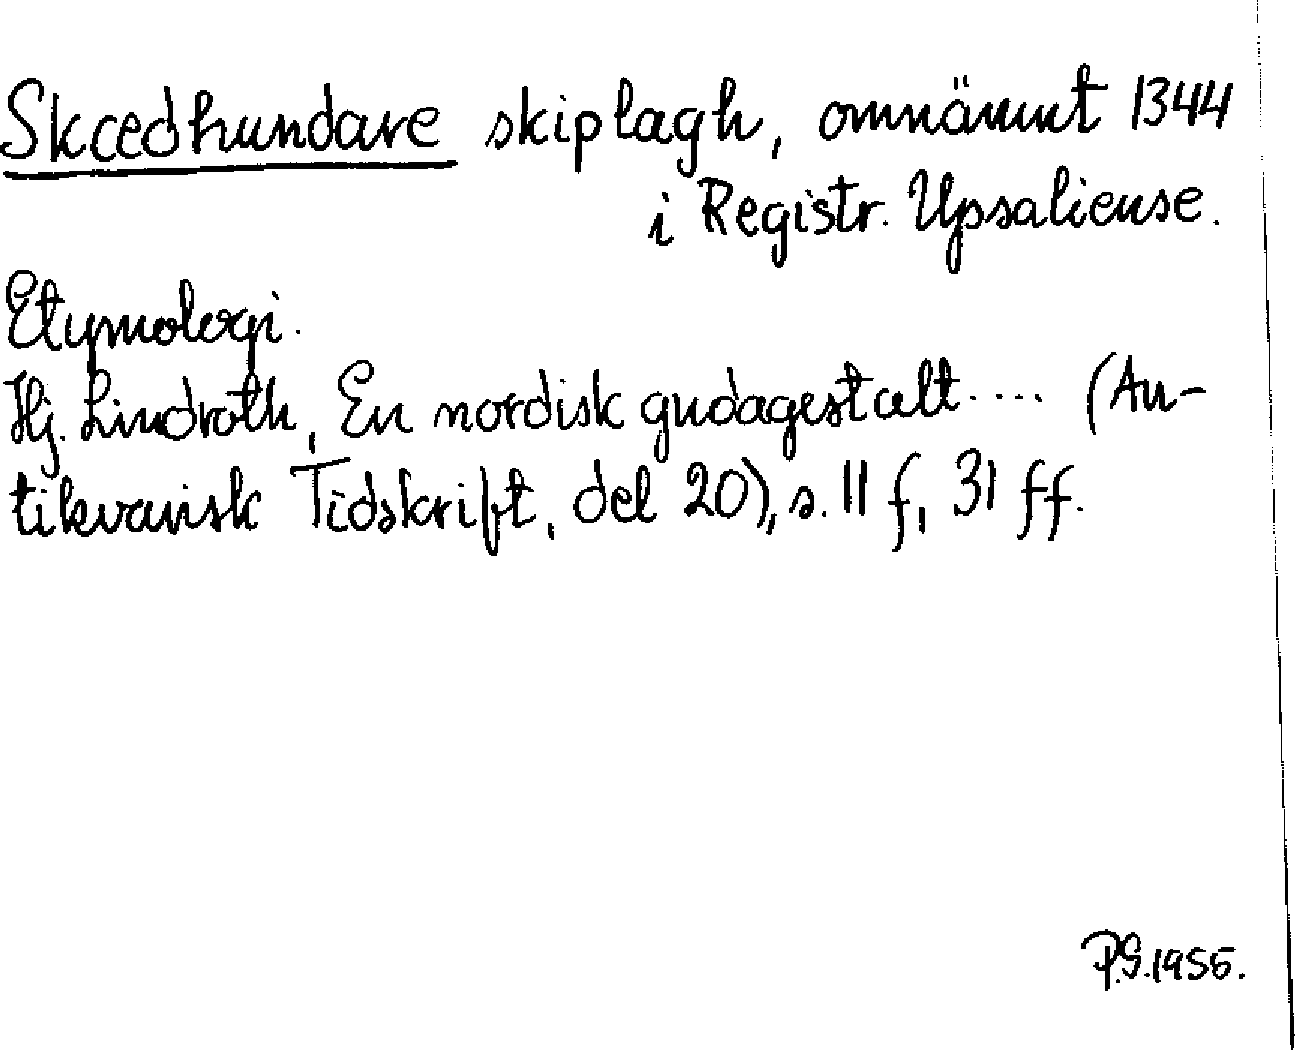 Skædhundare skiplagh, omnämnt 1344
i Registr. Upsaliense.
Etymologi.
Hj. Lindroth, En nordisk gudagestalt.... (An-
tikvarisk Tidskrift, del 20), s. 11 f, 31 ff.
P.G. 1955.